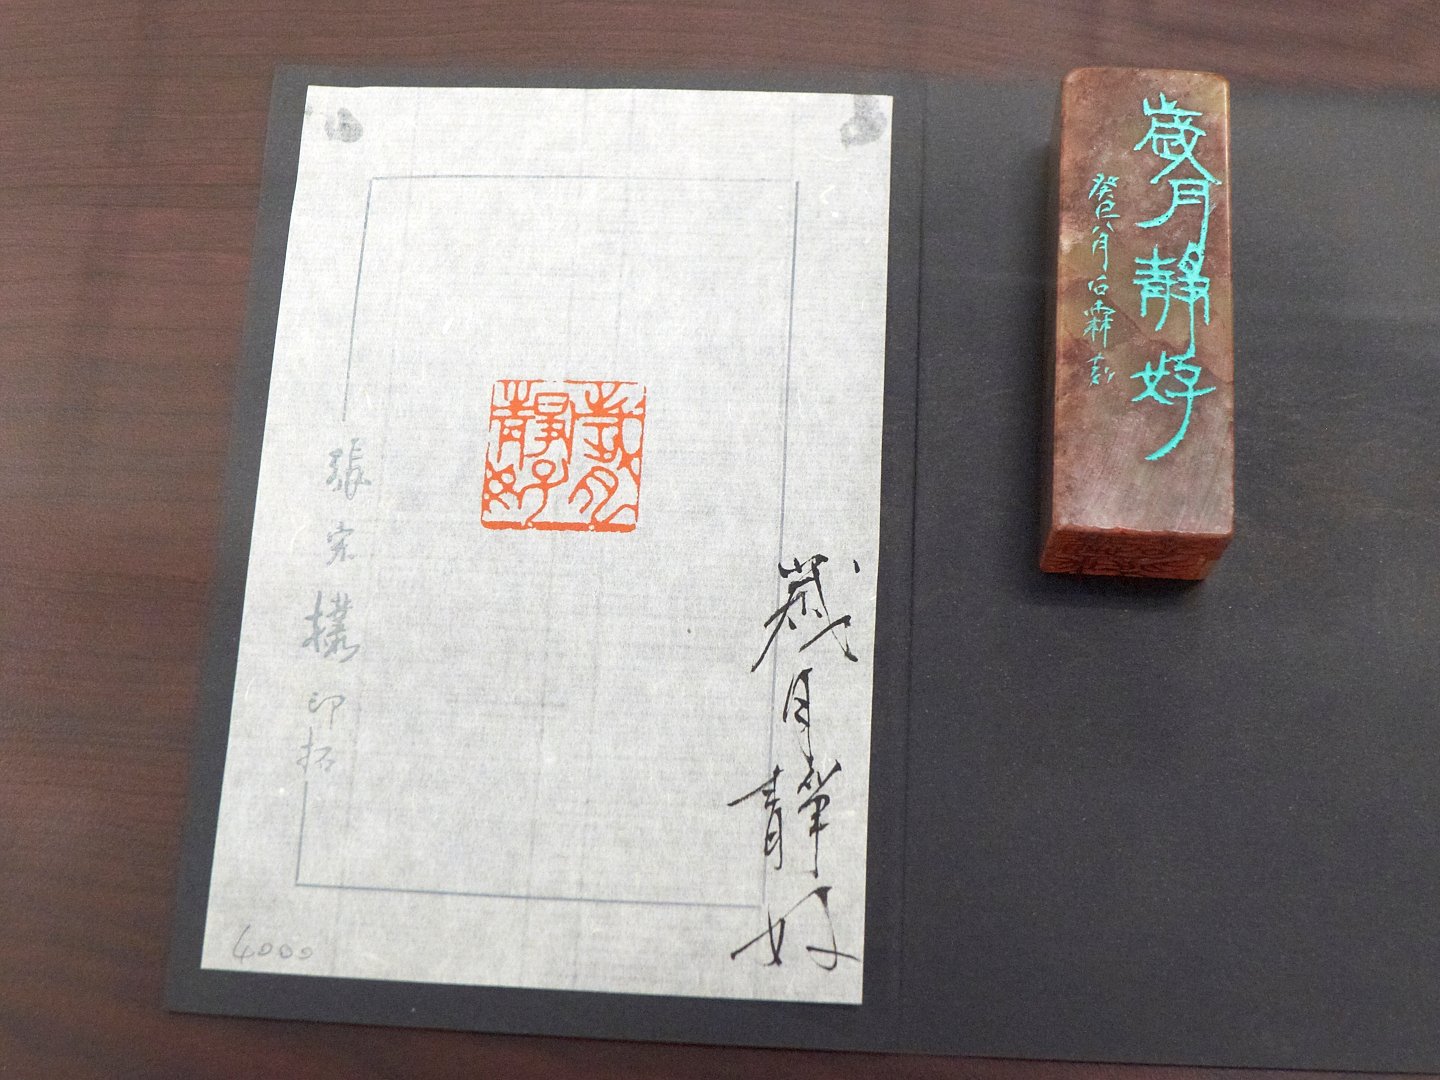 歲月靜好
歲月靜好
張宗樸印拓
4000
歲月靜好
癸巳八月石霖刻